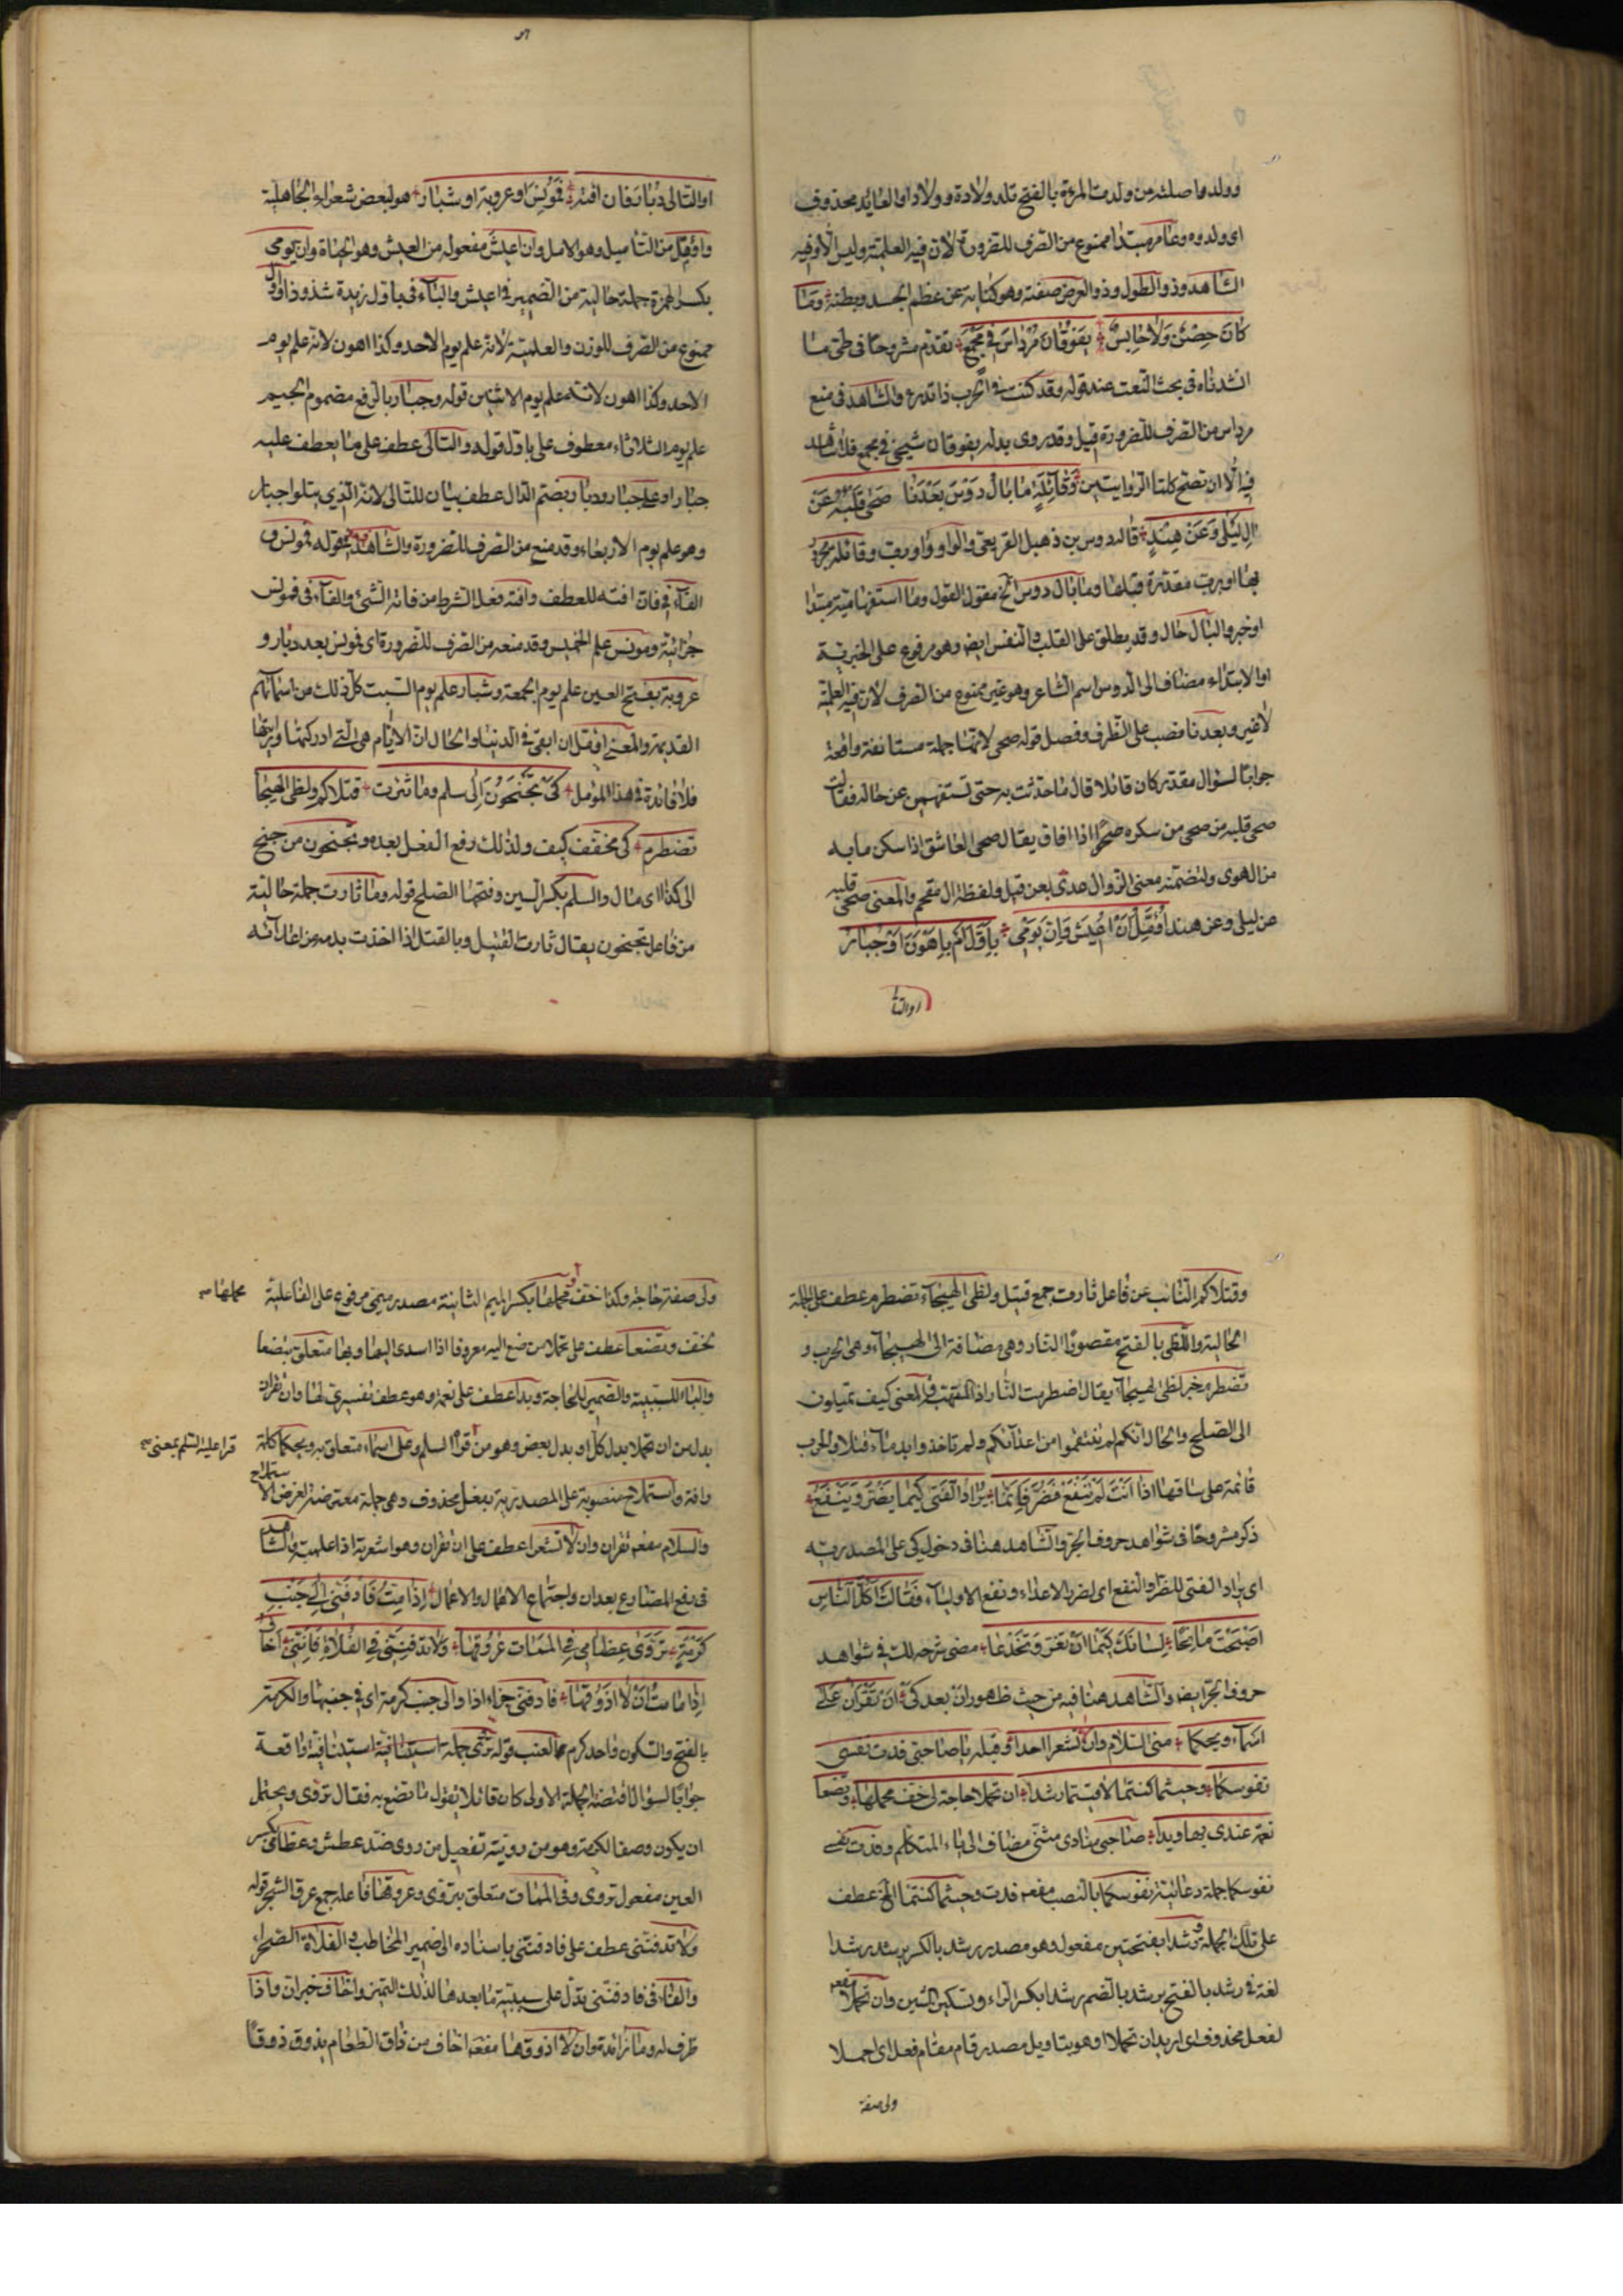 وولدوا صلته من ولدت المرءة بالفتح تلد ولادة وولادا والعائد محذوف
اى ولدوه وعامر مبتدا ممنوع من الصرف للضرورة لان فيه العلمية وليس الا وفيه
الشاهد وذو الطول وذو العرض صفته وهو كناية عن عظم الجسد وبطنه وما
كان حصن ولا حابس يفوقان مرداس فى مجمع تقدم مشروحا فى طى ما
انشدناه فى بحث النعت عند قوله وقد كنت فى الحرب ذا تدرء والشاهد فى منع
مرداس من الصرف للضرورة قيل وقد روى بدله يفوقان شيخى فى مجمع فلا شاهد
فيه الا ان تصح كلتا الروايتين وقائلة ما بال دوس بعدنا صحى قلبه عن
ال ليلى وعن هند قاله دوس بن ذهبل القريعى والواو واو رب وقائلة مجرور
بها او برب مقدرة قبلها وما بال دوس الخ مقول القول وما استفهامية مبتدا
او خبر والبال حال وقد يطلق على القلب والنفس ايضا وهو مرفوع على الخبرية
او الابتداء مضاف الى الدوس اسم الشاعر وهو غير ممنوع من الصرف لان فيه العلمية
لا غير وبعدنا نصب على الظرف وفصل قوله صحى لانها جملة مستانفة واقعة
جوابا لسؤال مقدر كان قائلا قال ما حدثت به حتى تستفهمين عن حاله فقالت
صحى قلبه من صحى من سكره صحوا اذا افاق يقال صحى العاشق اذا سكن ما به
من الهوى ولتضمنه معنى الزوال عدى بعن قيل ولفظة ال مقحم والمعنى صحى قلبه
عن ليلى وعن هند اؤمل ان اعيش وان يومى باول ام باهون او جبار
او التا
او التالى دبار فان افته فمونس او عروبة او شبار هو لبعض شعراء الجاهلية
واؤمل من التاميل وهو الامل وان اعيش مفعوله من العيش وهو الحياة وان يومى
بكسر الهمزة جملة حالية من الضمير فى اعيش والباء فى باول زيدة شذوذا واول
ممنوع من الصرف للوزن والعلمية لانه علم يوم الاحد وكذا اهون لانه علم يوم
الاحد وكذا اهون لانه علم يوم الاثنين قوله وجبار بالرفع مضموم الجيم
علم يوم الثلاثاء معطوف على باول قوله والتالى عطف على ما يعطف عليه
جبار او على جبار ودبار بضم الدال عطف بيان للتالى لانه الذى يتلوا جبار
وهو علم يوم الاربعاء وقد منع من الصرف للضرورة والشاهد فيه قوله فمونس و
الفاء فى فان افته للعطف وافته فعل الشرط من فاته الشئ والفاء فى فمونس
جزائية ومونس علم الخميس وقد منعه من الصرف للضرورة اى فمونس بعد دبار و
عروبة بفتح العين علم يوم الجمعة وشبار علم يوم السبت كل ذلك من اسمائهم
القديمة والمعنى اؤمل ان ابقى فى الدنيا والحال ان الايام هى التى ادركتها ورايتها
فلا فائدة فى هذا المؤمل كى تجنحون الى سلم وما ثئرت قتلاكم ولظى الهيجا
تضطرم كى مخفف كيف ولذلك رفع الفعل بعده وتجنحون من جنح
الى كذا اى مال والسلم بكسر السين وفتحها الصلح قوله وما ثارت جملة حالية
من فاعل تجنحون يقال ثارت القتيل وبالقتل اذا اخذت بدمه من اعدآئه
وقتلاكم النائب عن فاعل ثارت جمع قتيل ولظى الهيجاء تضطرم عطف على الجملة
الحالية واللظى بالفتح مقصورا النار وهى مضافة الى الهيجاء وهى الحرب و
تضطرم خبر لظى الهيجاء يقال اضطرمت النار اذا التهبت والمعنى كيف تميلون
الى الصلح والحال انكم لم ينتقموا من اعدآئكم ولم تاخذوا بدماء قتلاكم والحرب
قائمة على ساقها اذا انت لم تنفع فضر فانما يراد الفتى كيما يضر وينفع
ذكر مشروحا فى شواهد حروف الجر والشاهد هنا فى دخول كى على المصدرية
اى يراد الفتى للضر والنفع اى لضر الاعداء ونفع الاولياء فقالت اكل الناس
اصبحت مانحا لسانك كيما ان تغر وتخدعا مضى شرحه لك فى شواهد
حروف الجر ايضا والشاهد هنا فيه من حيث ظهور ان بعد كى ان تقران على
اسماء ويحكما منى السلام وان لا تشعرا احدا وقبله يا صاحبى فدت نفسى
نفوسكما وحيثما كنتما لاقيتما رشدا ان تحملا حاجة لى خف محملها وتصنعا
نعمة عندى بها ويدا صاحبى منادى مثنى مضاف الى ياء المتكلم وفدت نفسى
نفوسكما جملة دعائية نفوسكما بالنصب مفعول فدت وحيثما كنتما الخ عطف
على تلك الجملة ورشدا بفتحتين مفعوله وهو مصدر رشد بالكسر يرشد رشدا
لغة فى رشد بالفتح يرشد بالضم رشدا بكسر الراء وتسكين الشين وان تحملا مفعول
لفعل محذوف اى اريد ان تحملا او هو بتاويل مصدر قام مقام فعل اى احملا
ولى صفة
ولى صفة حاجة وكذا خف ومحملها بكسر الميم الثانية مصدر ميمى مرفوع على الفاعلية
محملها صح
لخفف وتصنعا عطف على تحملا من صنع اليه معروفا اذا اسدى اليها وبها متعلق بتصنعا
والباء للسببية والضمير للحاجة ويدا عطف على نعمة وهو عطف تفسيرى لها وان تقران
بدل من ان تحملا بدل كل او بدل بعض وهو من قرأ السلم وعلى اسماء متعلق به ويحكما كلمة
قرا عليه السلم بمعنى صح
رافة واستملاح منصوبة على المصدرية بفعل محذوف وهى جملة معترضة لغرض الاستملاح
والسلام مفعول تقران وان لا تشعرا عطف على ان تقران وهو اشعرته اذا علمته والشاهد
فى رفع المضارع بعد ان واجتماع الاهمال والاعمال اذا مت فادفنى الى جنب
كرمة تروى عظامى فى الممات عروقها ولا تدفننى فى الفلاة فاننى اخاف
اذا ما مت ان لا اذوقها فادفنى جزاء اذا والى جنب كرمة اى فى جنبها والكرمة
بالفتح والسكون واحد كرم العنب قوله تروى جملة استينافية استينافية واقعة
جوابا لسؤال اقتضته الجملة الاولى كان قائلا يقول ما تصنع به فقال تروى ويحتمل
ان يكون وصفا لكرمة وهو من رويته تفعيل من روى ضد عطش وعظامى بكسر
العين مفعول تروى وفى الممات متعلق بتروى وعروقها فاعله جمع عرق الشجر قوله
ولا تدفننى عطف على فادفننى باسناده الى ضمير المخاطب والفلاة الصحراء
والفاء فى فادفننى تدل على سببية ما بعدها لذلك واخاف خبر ان واذا
ظرف له وما زائدة وان لا اذوقها مفعول اخاف من ذاق الطعام يذوق ذوقا